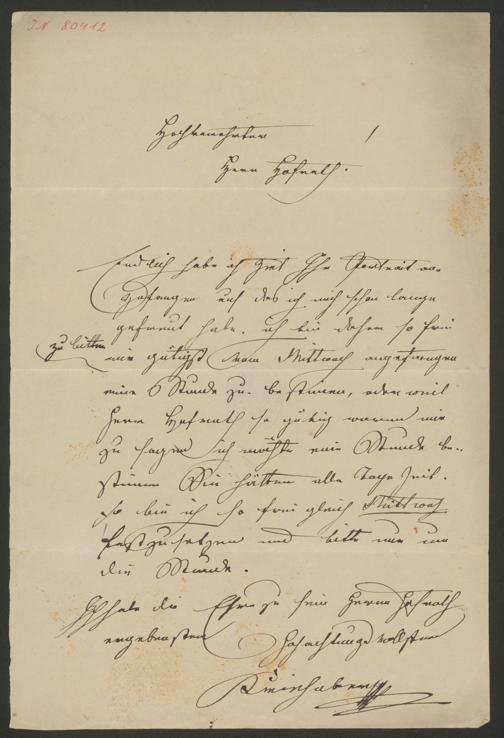 IN 80412
Hochverehrter
Herr Hofrath.
Endlich habe ich Zeit Ihr Portrait an-
zufangen auf das ich mich schon lange
gefreut habe. ich bin daher so frei
zu bitten
mir gütigst vom Mittwoch angefangen
eine Stunde zu bestimen, oder weil
Herr Hofrath so gütig waren mir
zu sagen ich möchte eine Stunde be-
stimen Sie hätten alle Tage Zeit.
so bin ich so frei gleich Mittwoch
festzusetzen und bitte nur um
die Stunde.
Ich habe die Ehre zu sein Herrn Hofrath
ergebensten Hochachtungsvollsten